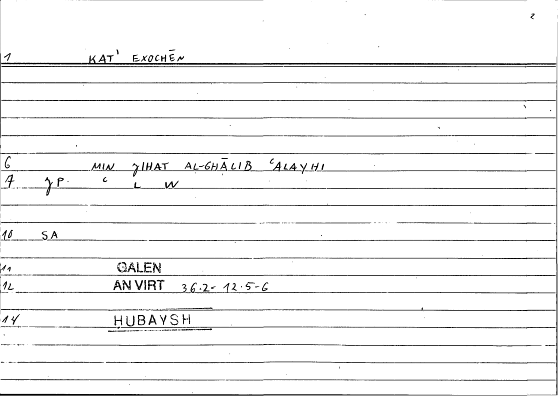 2
1 KAT' EXOCHĒN
6 MIN JIHAT AL-GHĀLIB ʿALAYHI
7 JP ʿ L W
10 SA
11 GALEN
12 AN VIRT 36.2- 12.5-6
14 HUBAYSH